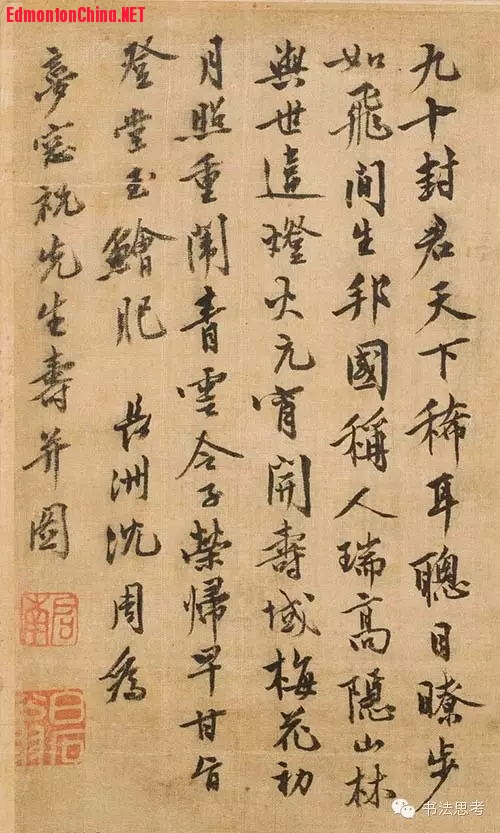 EdmontonChina.NET
九十封君天下稀耳聰目瞭步
如飛間生邦國稱人瑞高隐山林
與世違燈火元宵開壽域梅花初
月照重闈青雲令子榮歸早甘旨
登堂玉鱠肥 長洲沈周為
夢窓祝先生壽并圖
啓南
白石翁
书法思考